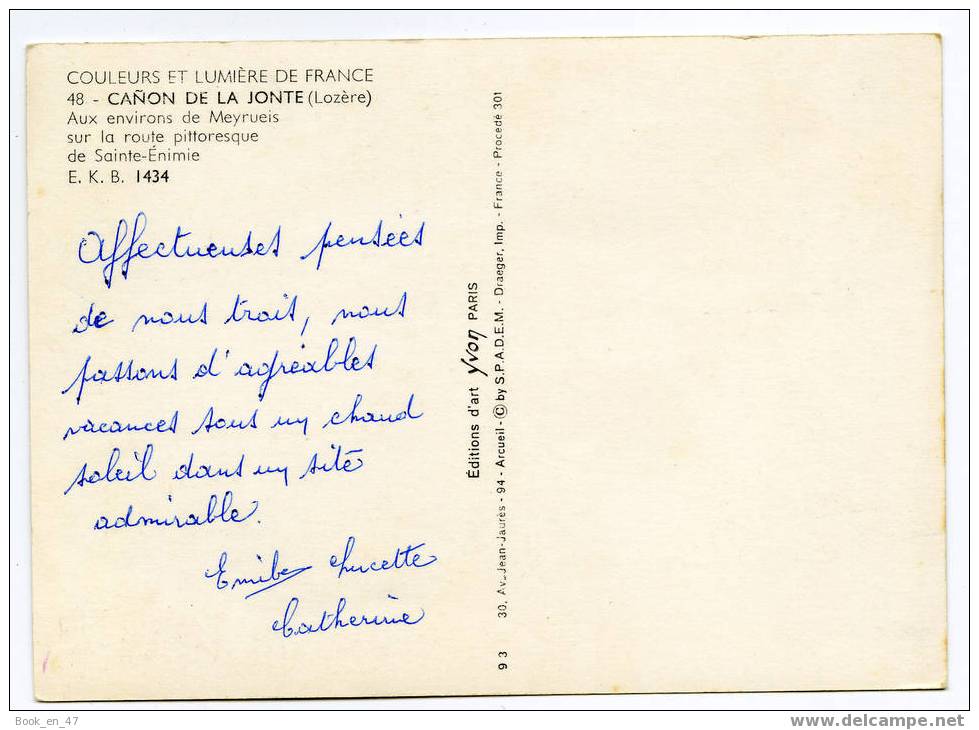 COULEURS ET LUMIÈRE DE FRANCE
48 - CAÑON DE LA JONTE (Lozère)
Aux environs de Meyrueis
sur la route pittoresque
de Sainte-Énimie
E. K. B. 1434
Affectueuses pensées
de nous trois, nous
passons d'agréables
vacances sous un chaud
soleil dans un site
admirable.
Emile Lucette
Catherine
Éditions d'art Yvon PARIS
93 30, Av. Jean-Jaurès - 94 - Arcueil - © by S.P.A.D.E.M. - Draeger, Imp. - France - Procédé 301
Book_en_47
www.delcampe.net